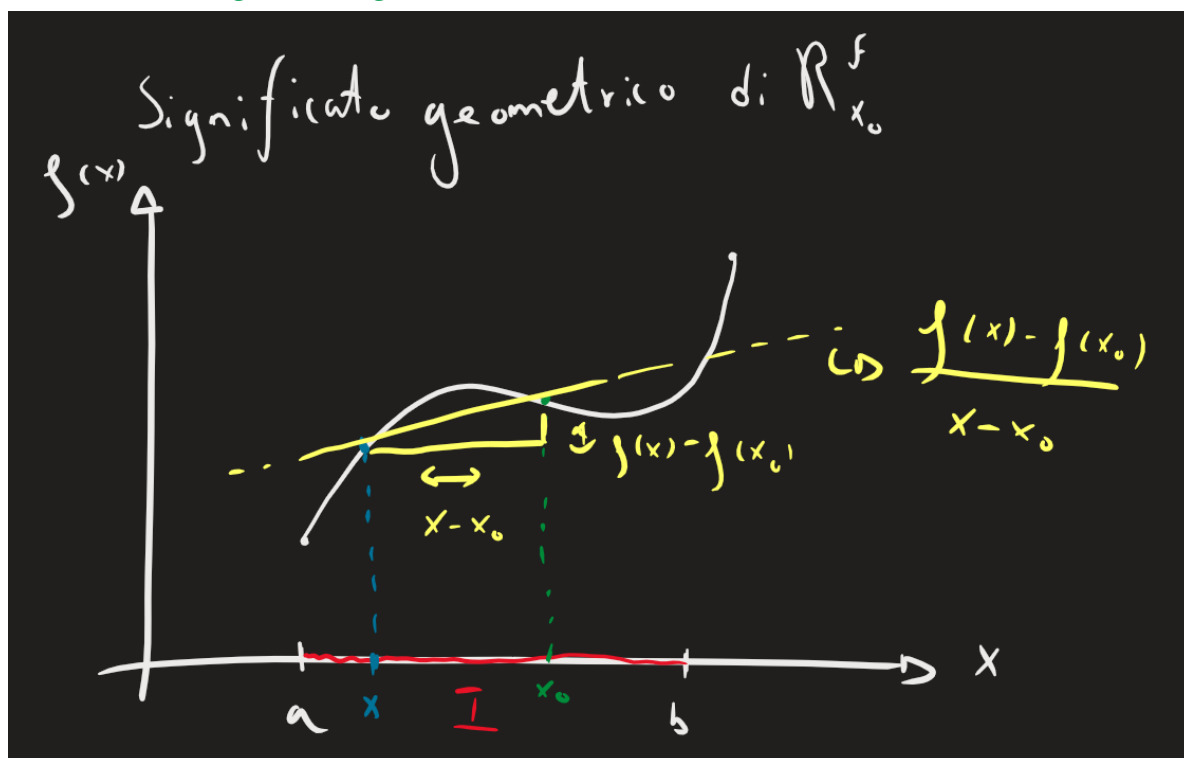 Significato geometrico di R^f_x₀
f(x)
f(x) - f(x₀)
x - x₀
f(x) - f(x₀)
x - x₀
x
a
x
I
x₀
b